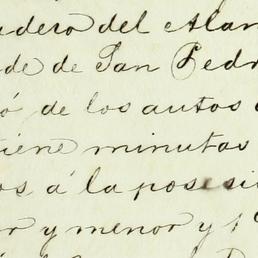 adero del Alam
de de San Pedr
ó de los autos
tiene minutas
os á la posesi
r y menor y 1º